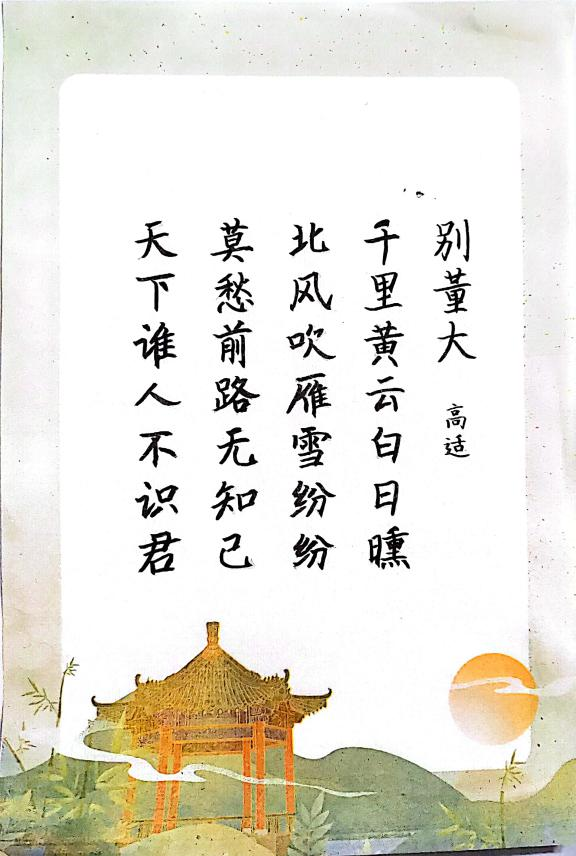 别董大 高适
千里黄云白日曛
北风吹雁雪纷纷
莫愁前路无知己
天下谁人不识君